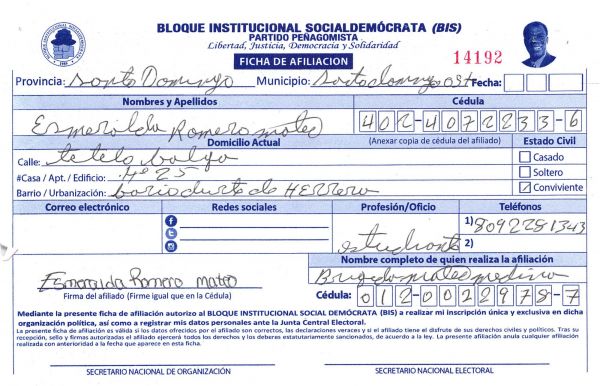 BLOQUE INSTITUCIONAL SOCIALDEMÓCRATA (BIS)
PARTIDO PEÑAGOMISTA
Libertad, Justicia, Democracia y Solidaridad
FICHA DE AFILIACION
14192
Provincia: Santo Domingo Municipio: Fecha:
Nombres y Apellidos Cédula
Esmeralda Romero mateo 402-4072233-6
Domicilio Actual (Anexar copia de cédula del afiliado) Estado Civil
Calle: Casado
#Casa / Apt. / Edificio: #25 Soltero
Barrio / Urbanización: de HERRERA Conviviente
Correo electrónico Redes sociales Profesión/Oficio Teléfonos
1) 8092281343
estudiante 2)
Nombre completo de quien realiza la afiliación
Esmeralda Romero Mateo
Firma del afiliado (Firme igual que en la Cédula) Cédula: 012-0022978-7
Mediante la presente ficha de afiliación autorizo al BLOQUE INSTITUCIONAL SOCIAL DEMÓCRATA (BIS) a realizar mi inscripción única y exclusiva en dicha
organización política, así como a registrar mis datos personales ante la Junta Central Electoral.
La presente ficha de afiliación es válida si los datos ofrecidos por el afiliado son correctos, las declaraciones veraces y si el afiliado tiene el disfrute de sus derechos civiles y políticos. Tras su
recepción, sello y firmas autorizadas el afiliado ejercerá todos los derechos y los deberes estatutariamente sancionados, de acuerdo a la ley. La presente afiliación anula cualquier afiliación
realizada con anterioridad a la fecha que aparece en esta ficha.
SECRETARIO NACIONAL DE ORGANIZACIÓN SECRETARIO NACIONAL ELECTORAL